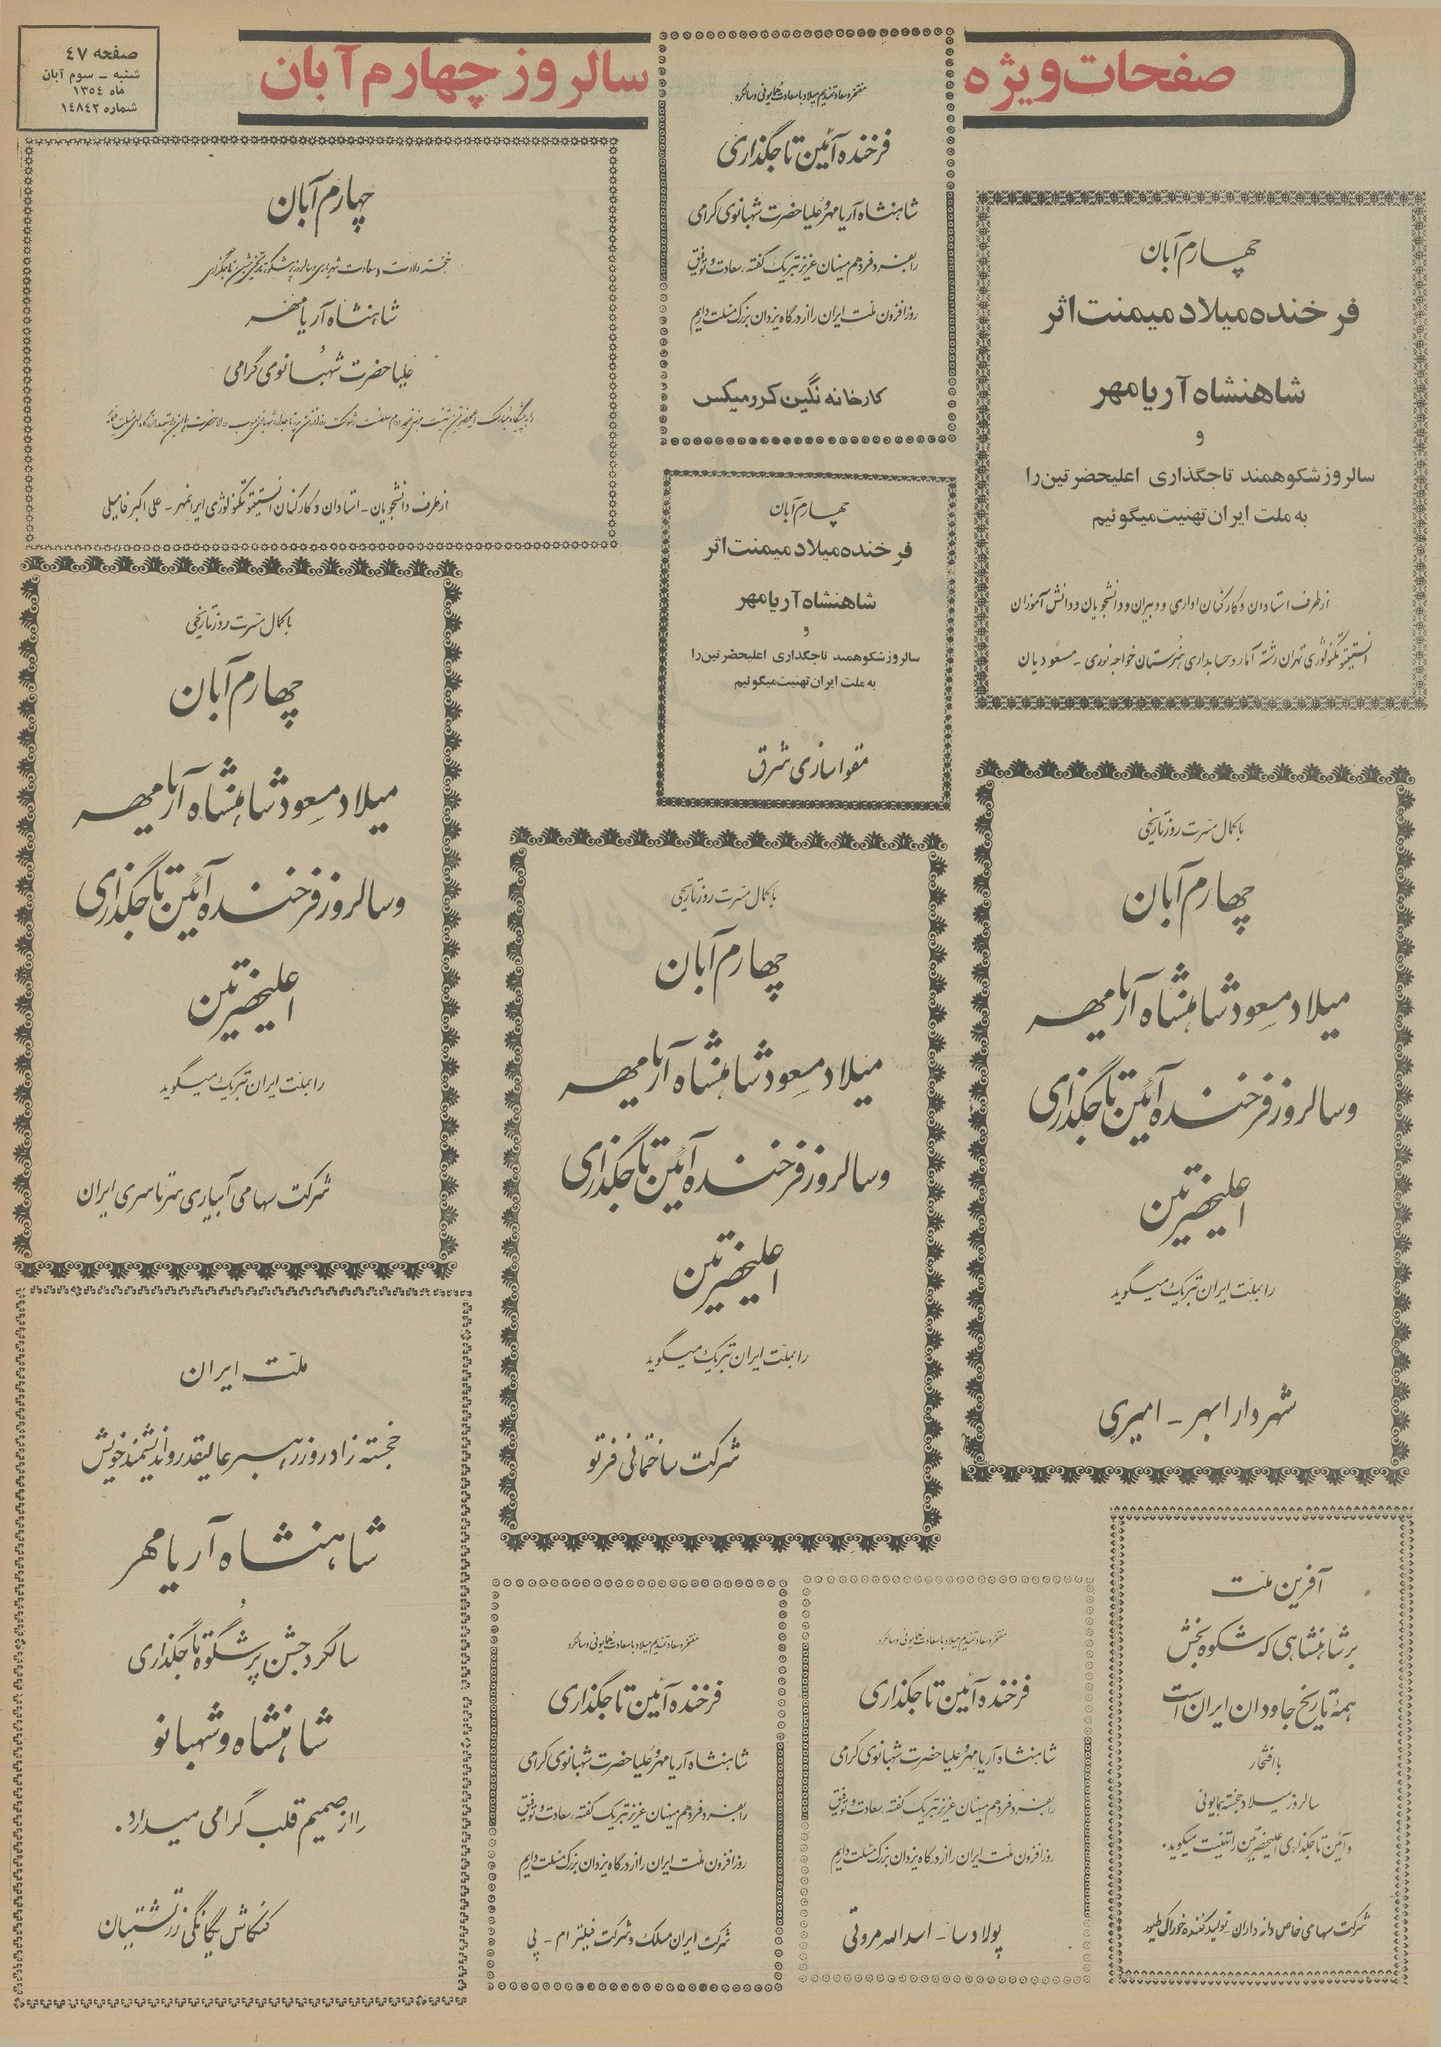 صفحات ویژه
سالروز چهارم آبان
صفحه ٤٧
شنبه ـ سوم آبان
ماه ١٣٥٤
شماره ١٤٨٤٢
چهارم آبان
فرخنده میلاد میمنت اثر
شاهنشاه آریامهر
و
سالروز شکوهمند تاجگذاری اعلیحضرتین را
به ملت ایران تهنیت میگوئیم
از طرف استادان و کارکنان اداری و دبیران و دانشجویان و دانش آموزان
انستیتو تکنولوژی تهران رشته آمار و حسابداری هنرستان خواجه نوری ـ مسعودیان
مفتخر و سعادتمندیم میلاد با سعادت همایونی و سالگرد
فرخنده آئین تاجگذاری
شاهنشاه آریامهر و علیاحضرت شهبانوی گرامی
را بفرد فرد هم میهنان عزیز تبریک گفته، سعادت و توفیق
روزافزون ملت ایران را از درگاه یزدان بزرگ مسئلت داریم
کارخانه نگین کرومیکس
چهارم آبان
خجسته ولادت با سعادت شهریاری و سالروز پرشکوه تاریخی جشن تاجگذاری
شاهنشاه آریامهر
و
علیاحضرت شهبانوی گرامی
از طرف دانشجویان ـ استادان و کارکنان انستیتو تکنولوژی ایرانمهر ـ علی اکبر فامیلی
چهارم آبان
فرخنده میلاد میمنت اثر
شاهنشاه آریامهر
و
سالروز شکوهمند تاجگذاری اعلیحضرتین را
به ملت ایران تهنیت میگوئیم
مقواسازی شرق
با کمال مسرت روز تاریخی
چهارم آبان
میلاد مسعود شاهنشاه آریامهر
و سالروز فرخنده آئین تاجگذاری
اعلیحضرتین
را بملت ایران تبریک میگوید
شهردار ابهر ـ امیری
با کمال مسرت روز تاریخی
چهارم آبان
میلاد مسعود شاهنشاه آریامهر
و سالروز فرخنده آئین تاجگذاری
اعلیحضرتین
را بملت ایران تبریک میگوید
شرکت ساختمانی فرتو
با کمال مسرت روز تاریخی
چهارم آبان
میلاد مسعود شاهنشاه آریامهر
و سالروز فرخنده آئین تاجگذاری
اعلیحضرتین
را بملت ایران تبریک میگوید
شرکت سهامی آبیاری سرتاسری ایران
آفرین ملت
بر شاهنشاهی که شکوه بخش
همه تاریخ جاودان ایران است
با افتخار
سالروز میلاد خجسته همایونی
و آئین تاجگذاری اعلیحضرتین را تهنیت میگوید.
شرکت سهامی خاص دانه داران ـ تولید کننده خوراک طیور
مفتخر و سعادتمندیم میلاد با سعادت همایونی و سالگرد
فرخنده آئین تاجگذاری
شاهنشاه آریامهر و علیاحضرت شهبانوی گرامی
را بفرد فرد هم میهنان عزیز تبریک گفته، سعادت و توفیق
روزافزون ملت ایران را از درگاه یزدان بزرگ مسئلت داریم
پولادسا ـ اسدالله مروتی
مفتخر و سعادتمندیم میلاد با سعادت همایونی و سالگرد
فرخنده آئین تاجگذاری
شاهنشاه آریامهر و علیاحضرت شهبانوی گرامی
را بفرد فرد هم میهنان عزیز تبریک گفته، سعادت و توفیق
روزافزون ملت ایران را از درگاه یزدان بزرگ مسئلت داریم
شرکت ایران مسلک و شرکت فیلتر ام ـ پی
ملت ایران
خجسته زادروز رهبر عالیقدر و اندیشمند خویش
شاهنشاه آریامهر
و
سالگرد جشن پرشکوه تاجگذاری
شاهنشاه و شهبانو
را از صمیم قلب گرامی میدارد.
کنکاش یگانگی زرتشتیان